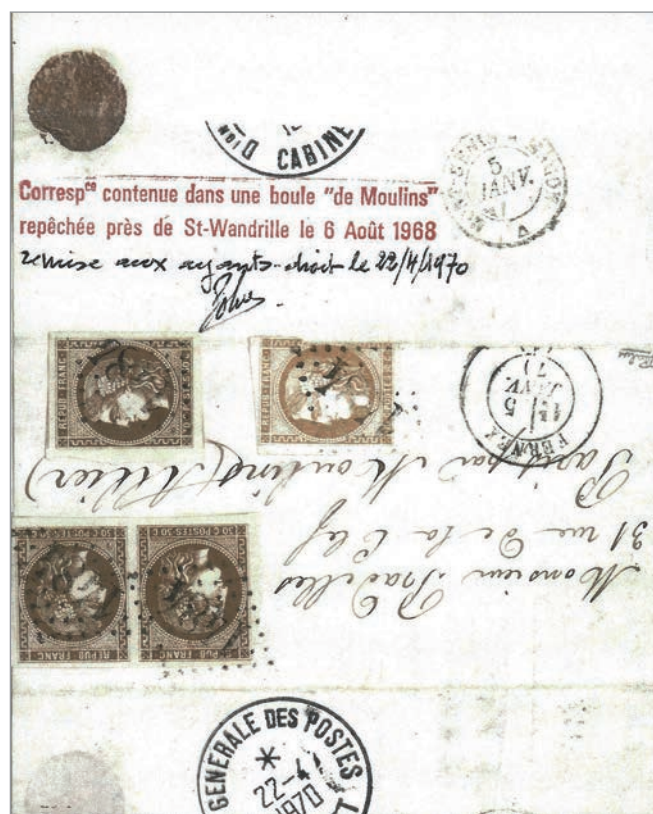 CABINE
5
JANV.
Corresp<sup>ce</sup> contenue dans une boule "de Moulins"
repêchée près de St-Wandrille le 6 Août 1968
remise aux ayants-droit le 22/4/1970
REPUB FRANC
REPUB FRANC
FERNEX
5
JANV.
Monsieur
31 rue De la Clef
Paris par Moulins (Allier)
30 C POSTES 30 C
30 C POSTES 30 C
REPUB FRANC
REPUB FRANC
GENERALE DES POSTES
22-4
1970